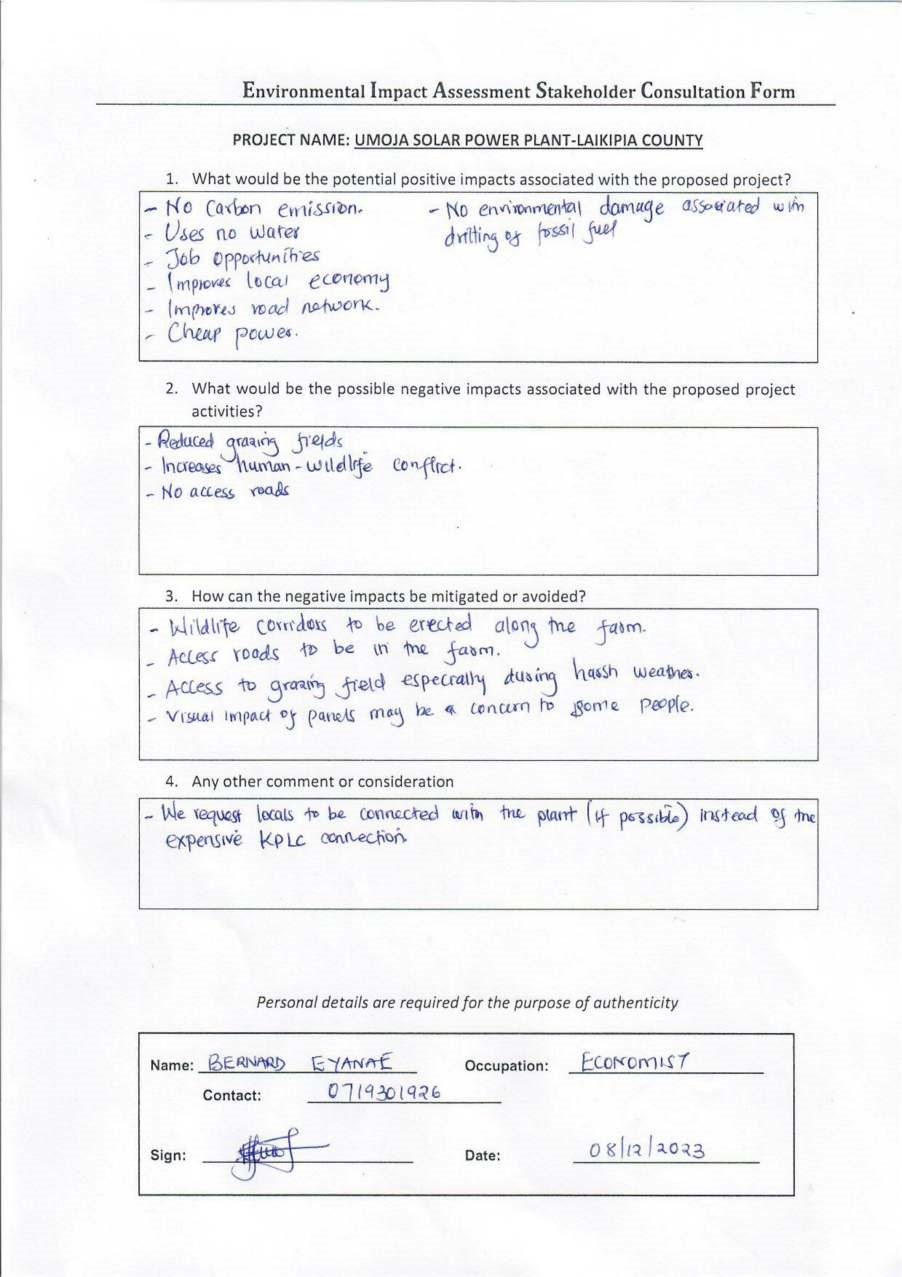 Environmental Impact Assessment Stakeholder Consultation Form
PROJECT NAME: UMOJA SOLAR POWER PLANT-LAIKIPIA COUNTY
1. What would be the potential positive impacts associated with the proposed project?
- No Carbon emission.
- Uses no water
- Job opportunities
- Improves local economy
- Improves road network.
- Cheap power.
- No environmental damage associated with
drilling of fossil fuel
2. What would be the possible negative impacts associated with the proposed project
activities?
- Reduced grazing fields
- Increases human-wildlife conflict.
- No access roads
3. How can the negative impacts be mitigated or avoided?
- Wildlife corridors to be erected along the farm.
- Access roads to be in the farm.
- Access to grazing field especially during harsh weather.
- Visual impact of panels may be a concern to some people.
4. Any other comment or consideration
- We request locals to be connected with the plant (if possible) instead of the
expensive KPLC connection
Personal details are required for the purpose of authenticity
Name: BERNARD EYANAE Occupation: ECONOMIST
Contact: 0719301926
Sign: Date: 08/12/2023